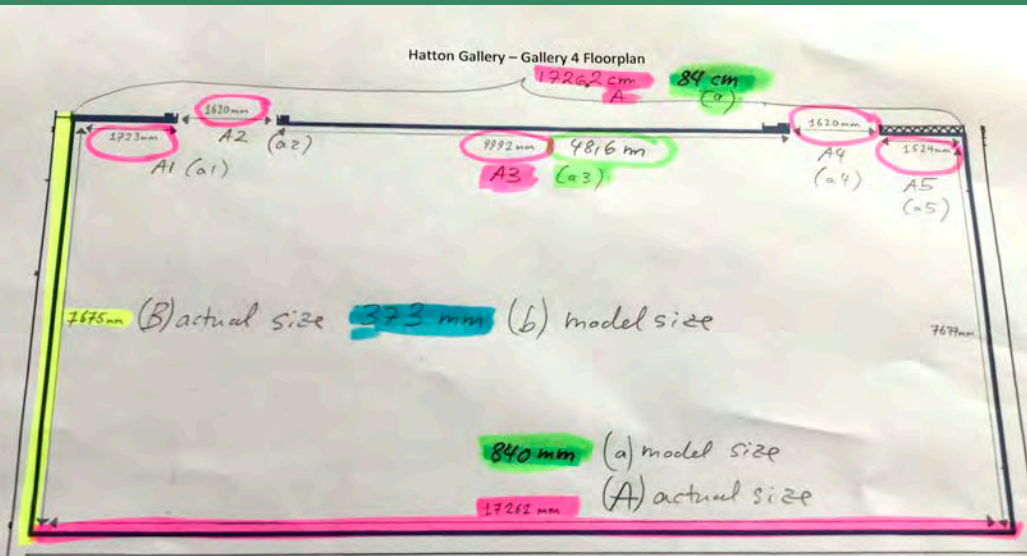 Hatton Gallery – Gallery 4 Floorplan
1726,2 cm 84 cm
A (a)
1620mm
1620mm
1723mm
A2 (a2)
9892 mm 48,6 m
A4
1524mm
A1 (a1)
A3 (a3)
(a4)
A5
(a5)
7675mm (B) actual size 373 mm (b) model size
7677mm
840 mm (a) model size
17262 mm (A) actual size